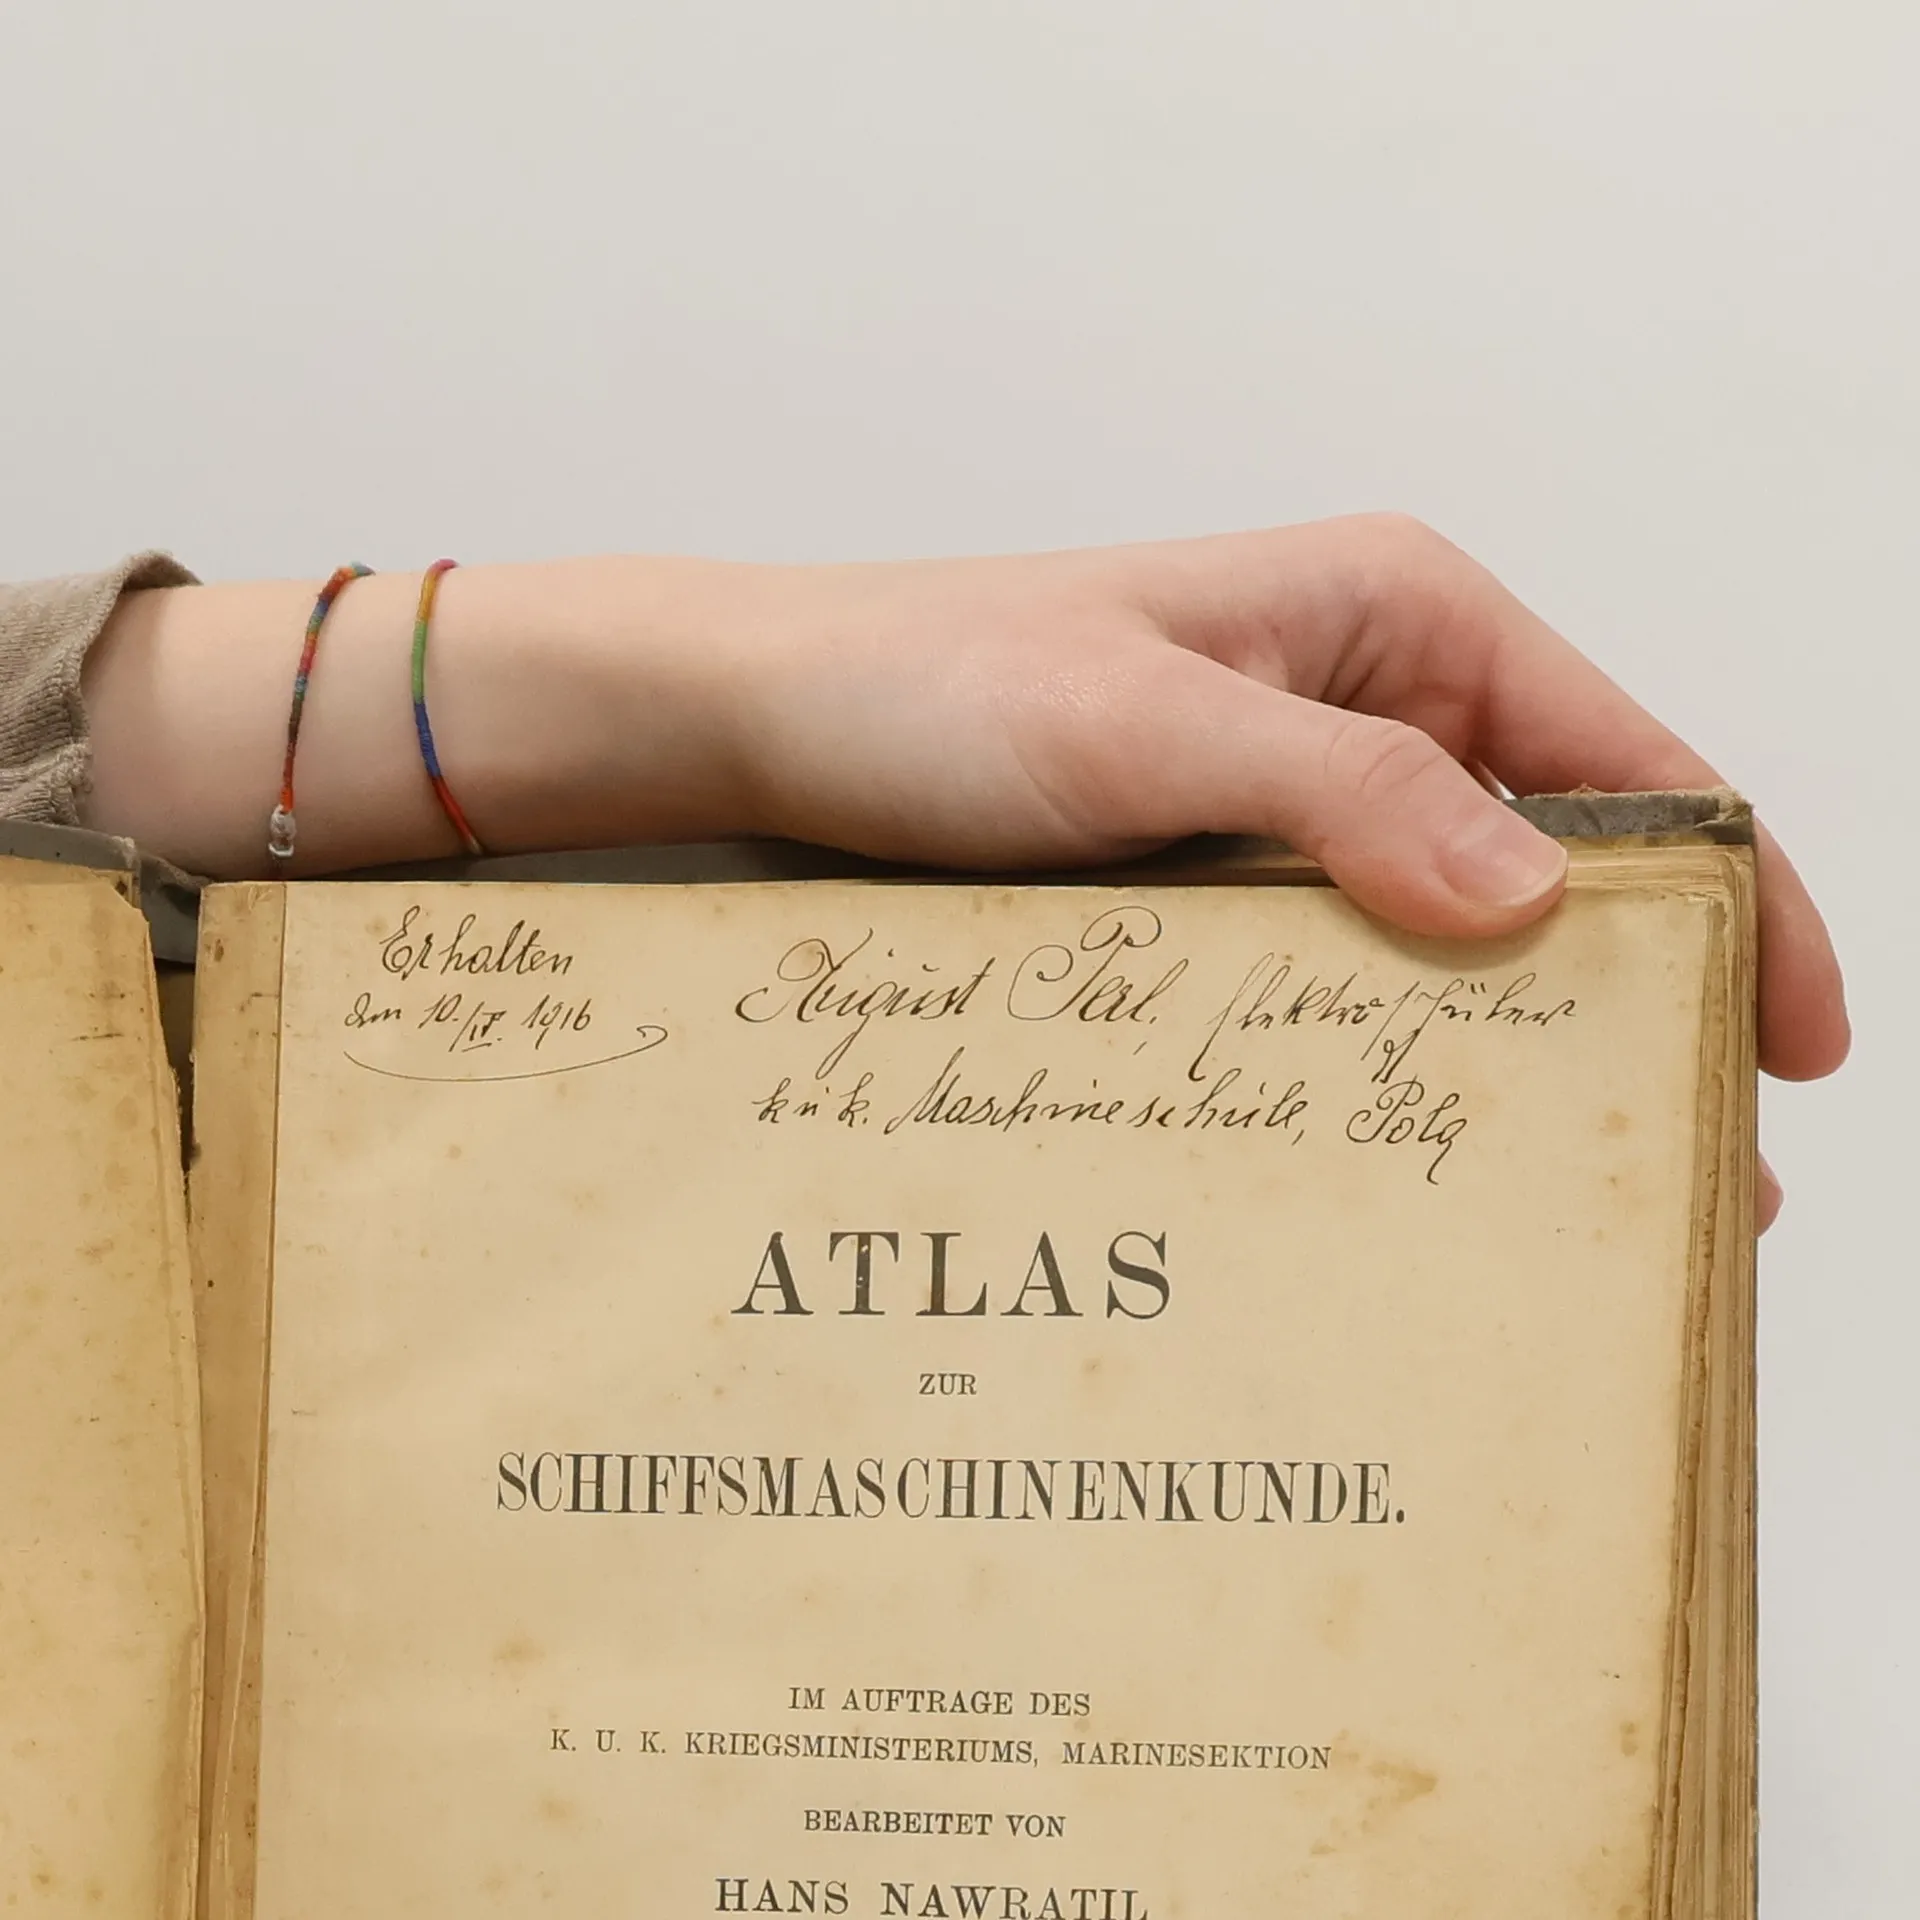 Erhalten
den 10./IV. 1916
August Perl, Elektroschüler
k u k. Maschineschule, Pola
ATLAS
ZUR
SCHIFFSMASCHINENKUNDE.
IM AUFTRAGE DES
K. U. K. KRIEGSMINISTERIUMS, MARINESEKTION
BEARBEITET VON
HANS NAWRATIL